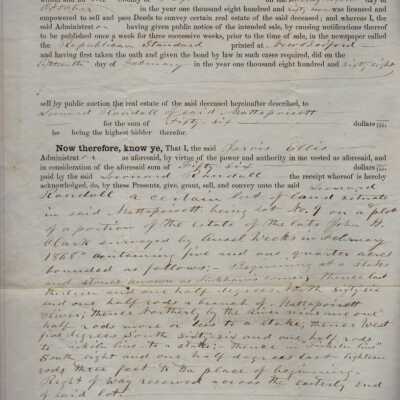 in the year one thousand eight hundred and sixty nine was licensed and
empowered to sell and pass Deeds to convey certain real estate of the said deceased; and whereas I, the
said Administrator having given public notice of the intended sale, by causing notifications thereof
to be published once a week for three successive weeks, prior to the time of sale, in the newspaper called
the Republican Standard printed at New Bedford
and having first taken the oath and given the bond by law in such cases required, did on the
day of February in the year one thousand eight hundred and sixty eight
sell by public auction the real estate of the said deceased hereinafter described, to
Leonard Randall of said Mattapoisett
for the sum of Fifty six dollars
he being the highest bidder therefor.
Now therefore, know ye, That I, the said Jarvis Ellis
Administrator as aforesaid, by virtue of the power and authority in me vested as aforesaid, and
in consideration of the aforesaid sum of Fifty six dollars
paid by the said Leonard Randall the receipt whereof is hereby
acknowledged, do, by these Presents, give, grant, sell, and convey unto the said Leonard
Randall a certain lot of land situate
in said Mattapoisett being lot No. 9 on a plot
of a portion of the estate of the late John H.
Clark surveyed by Ansel Weeks in February
1868 containing five and one quarter acres
bounded as follows; Beginning at a stake
and stones known as corner; thence
thirteen and one half degrees North sixty six
and one half rods a branch of Mattapoisett
river; thence Northerly by the river nine and one
half rods more or less to a stake; thence West
five degrees South sixty six and one half rods
to line to a stake; thence in line
South eight and one half degrees East eighteen
rods three feet to the place of beginning.
Right of way reserved across the easterly end
of said lot.